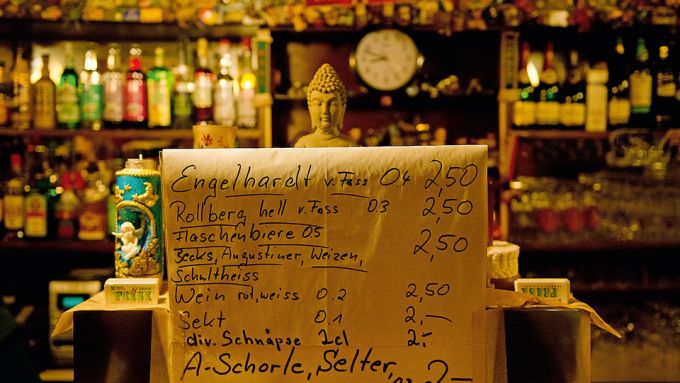 Engelhardt v. Fass 0.4 2,50
Rollberg hell v. Fass 0.3 2,50
Flaschenbiere 05 2,50
Becks, Augustiner, Weizen,
Schultheiss
Wein rot, weiss 0.2 2,50
Sekt 0.1 2.—
div. Schnäpse 2cl 2.-
A-Schorle, Selter, 2.—